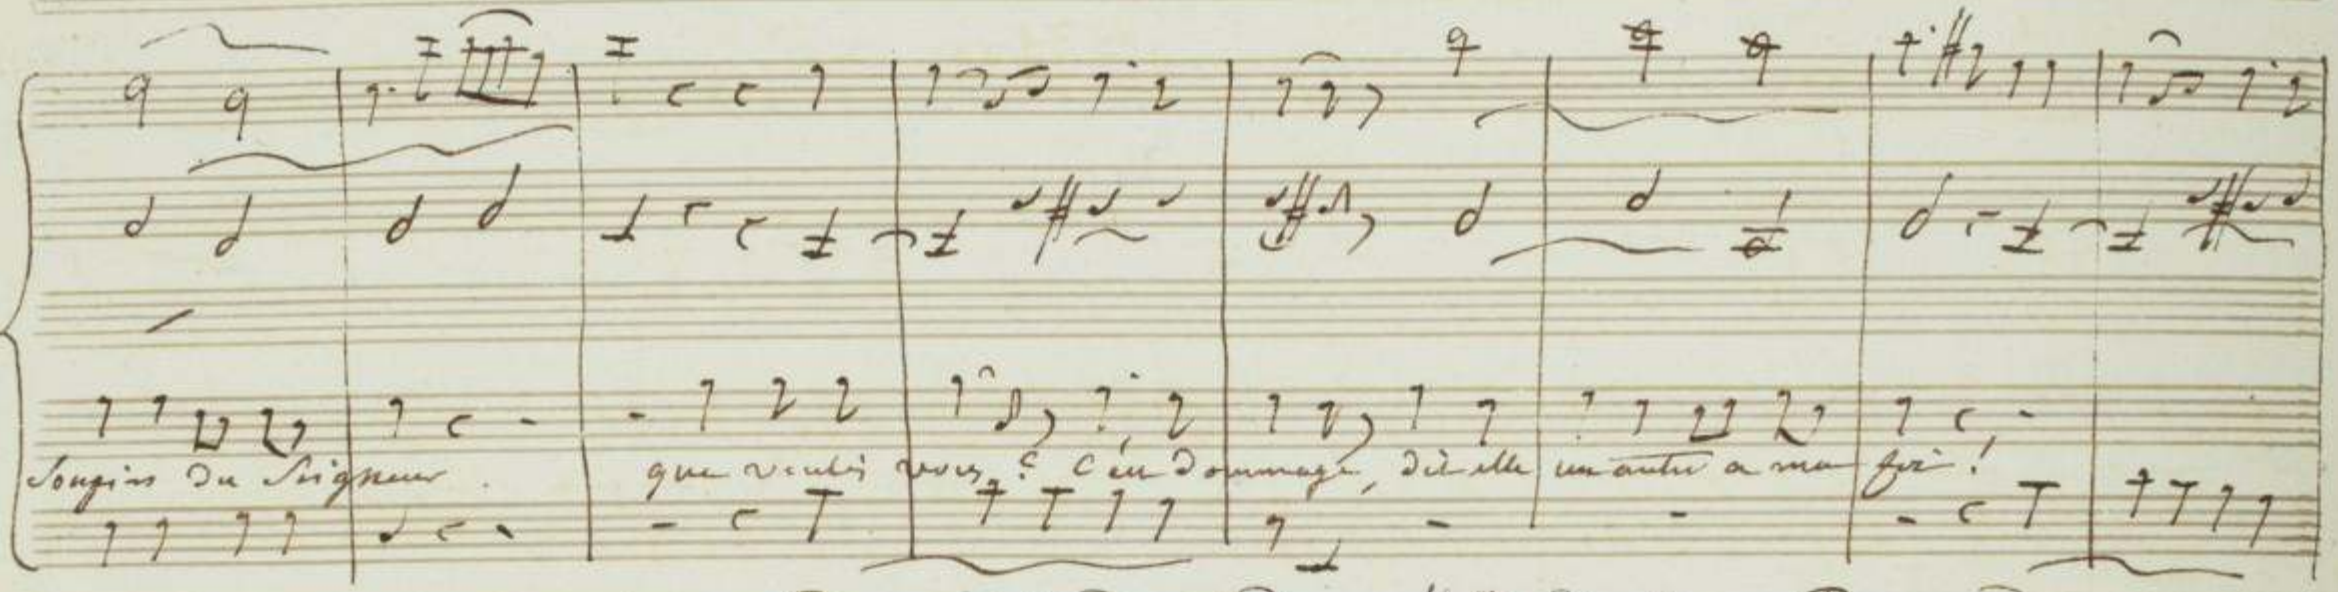 Soupirs du Seigneur . que voulés vous ? C'est dommage, dit elle un autre a ma foi !